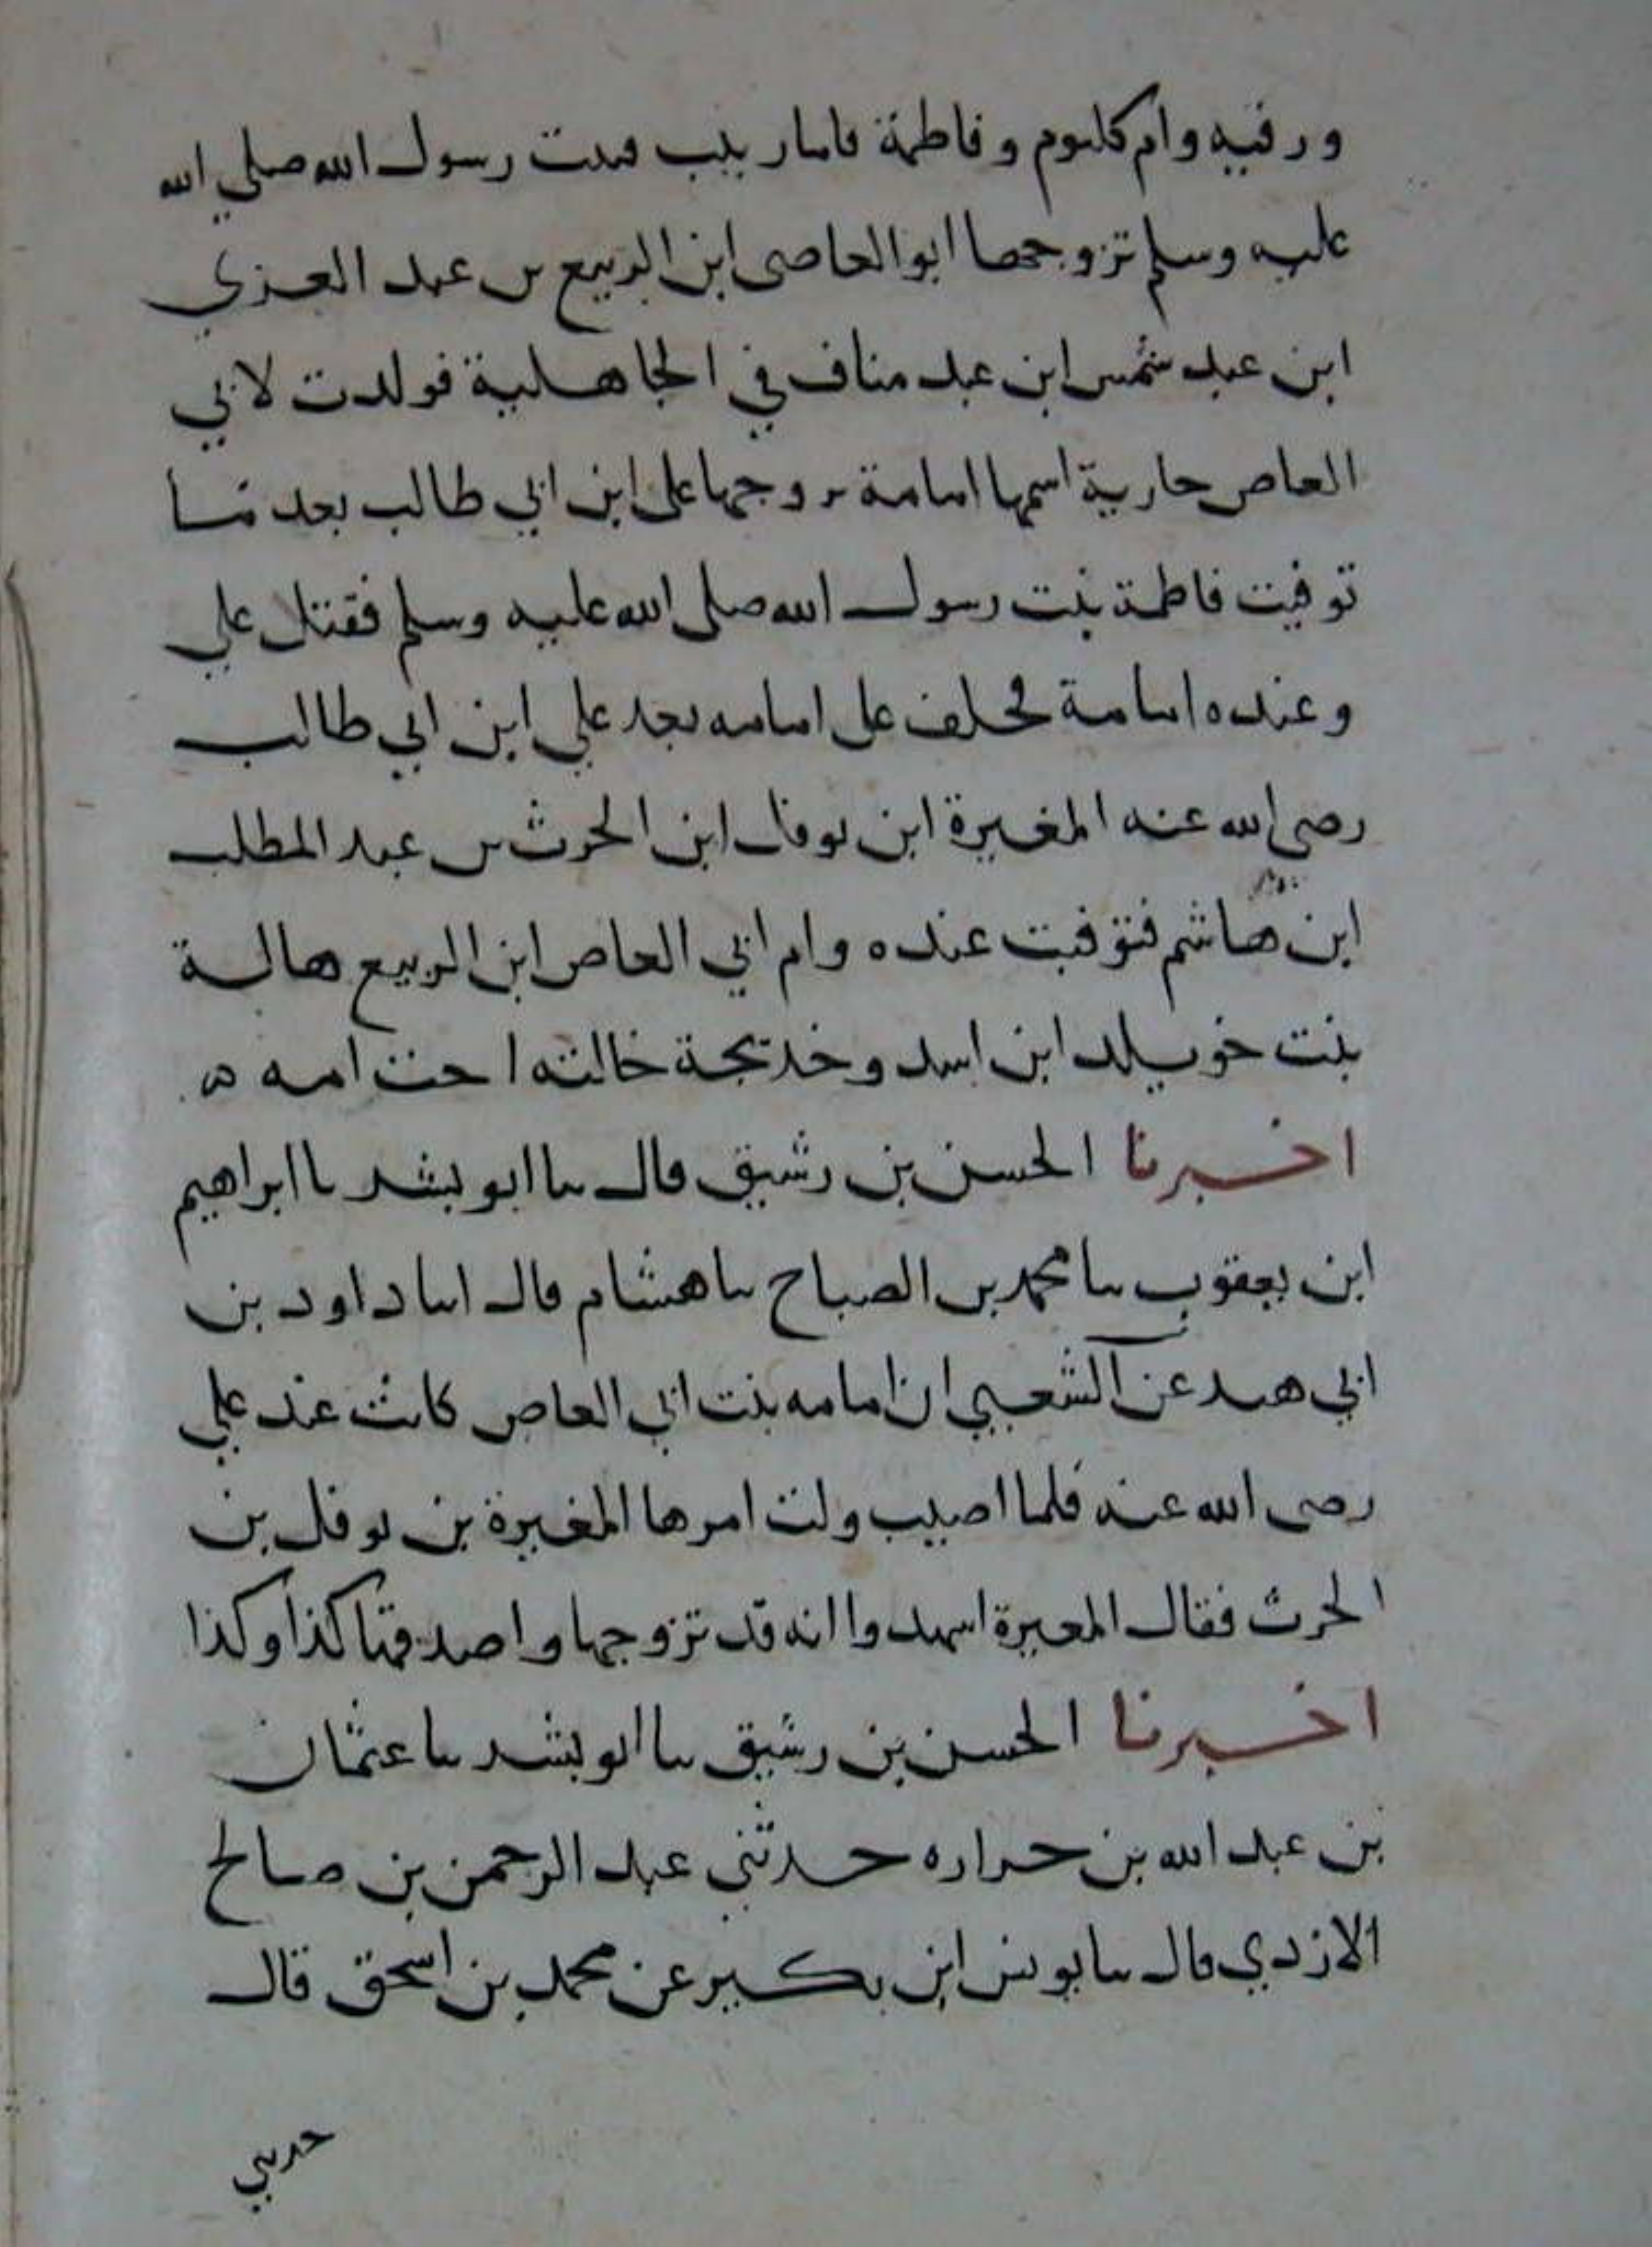 ورقيه وام كلثوم وفاطمة فاما زينب فبنت رسول الله صلى الله
عليه وسلم تزوجها ابو العاصى ابن الربيع بن عبد العزي
ابن عبد شمس ابن عبد مناف في الجاهلية فولدت لابي
العاص جارية اسمها امامة تزوجها على ابن ابي طالب بعد ما
توفيت فاطمة بنت رسول الله صلى الله عليه وسلم فقتل علي
وعنده امامة فخلف على امامه بعد علي ابن ابي طالب
رضي الله عنه المغيرة ابن نوفل ابن الحرث بن عبد المطلب
ابن هاشم فتوفيت عنده وام ابي العاص ابن الربيع هالة
بنت خويلد ابن اسد وخديجة خالته اخت امه ه
اخبرنا الحسن بن رشيق قال نا ابو بشر نا ابراهيم
ابن يعقوب نا محمد بن الصباح نا هشام قال انا داود بن
ابي هند عن الشعبي ان امامه بنت ابي العاص كانت عند علي
رضى الله عنه فلما اصيب ولت امرها المغيرة بن نوفل بن
الحرث فقال المغيرة اشهدوا انه قد تزوجها واصدقها كذا وكذا
اخبرنا الحسن بن رشيق نا ابو بشر نا عثمان
بن عبد الله بن حراره حدثني عبد الرحمن بن صالح
الازدي قال نا يونس ابن بكير عن محمد بن اسحق قال
حدثني